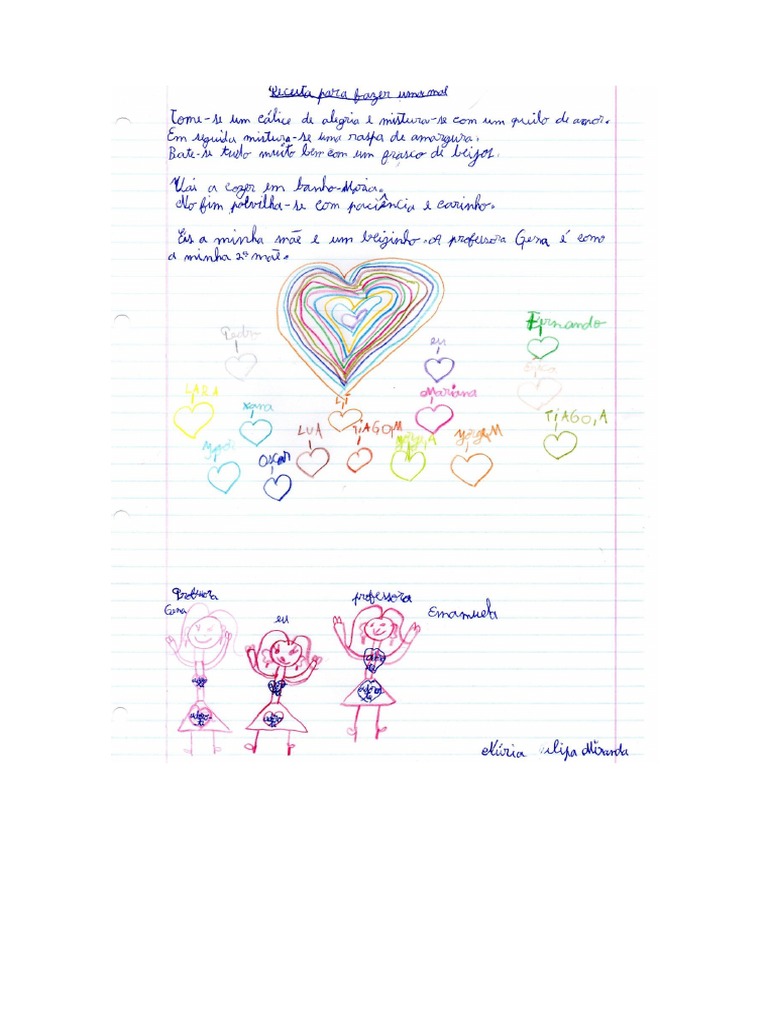 Receita para fazer
Tome-se um cálice de alegria e mistura-se com um quilo de amor.
Em seguida mistura-se uma raspa de amargura.
Bate-se tudo muito bem com um frasco de beijos.
Vai a cozer em banho-Maria.
No fim polvilha-se com paciência e carinho.
Eis a minha mãe e um beizinho. A professora Gena é como
a minha 2ª mãe.
Fernando
Pedro
eu
Erica
LARA
Mariana
xana
TIAGO,A
LUA
TIAGO,M
Oscar
professora
Gena
eu
professora
Emanuela
Núria Filipa Miranda